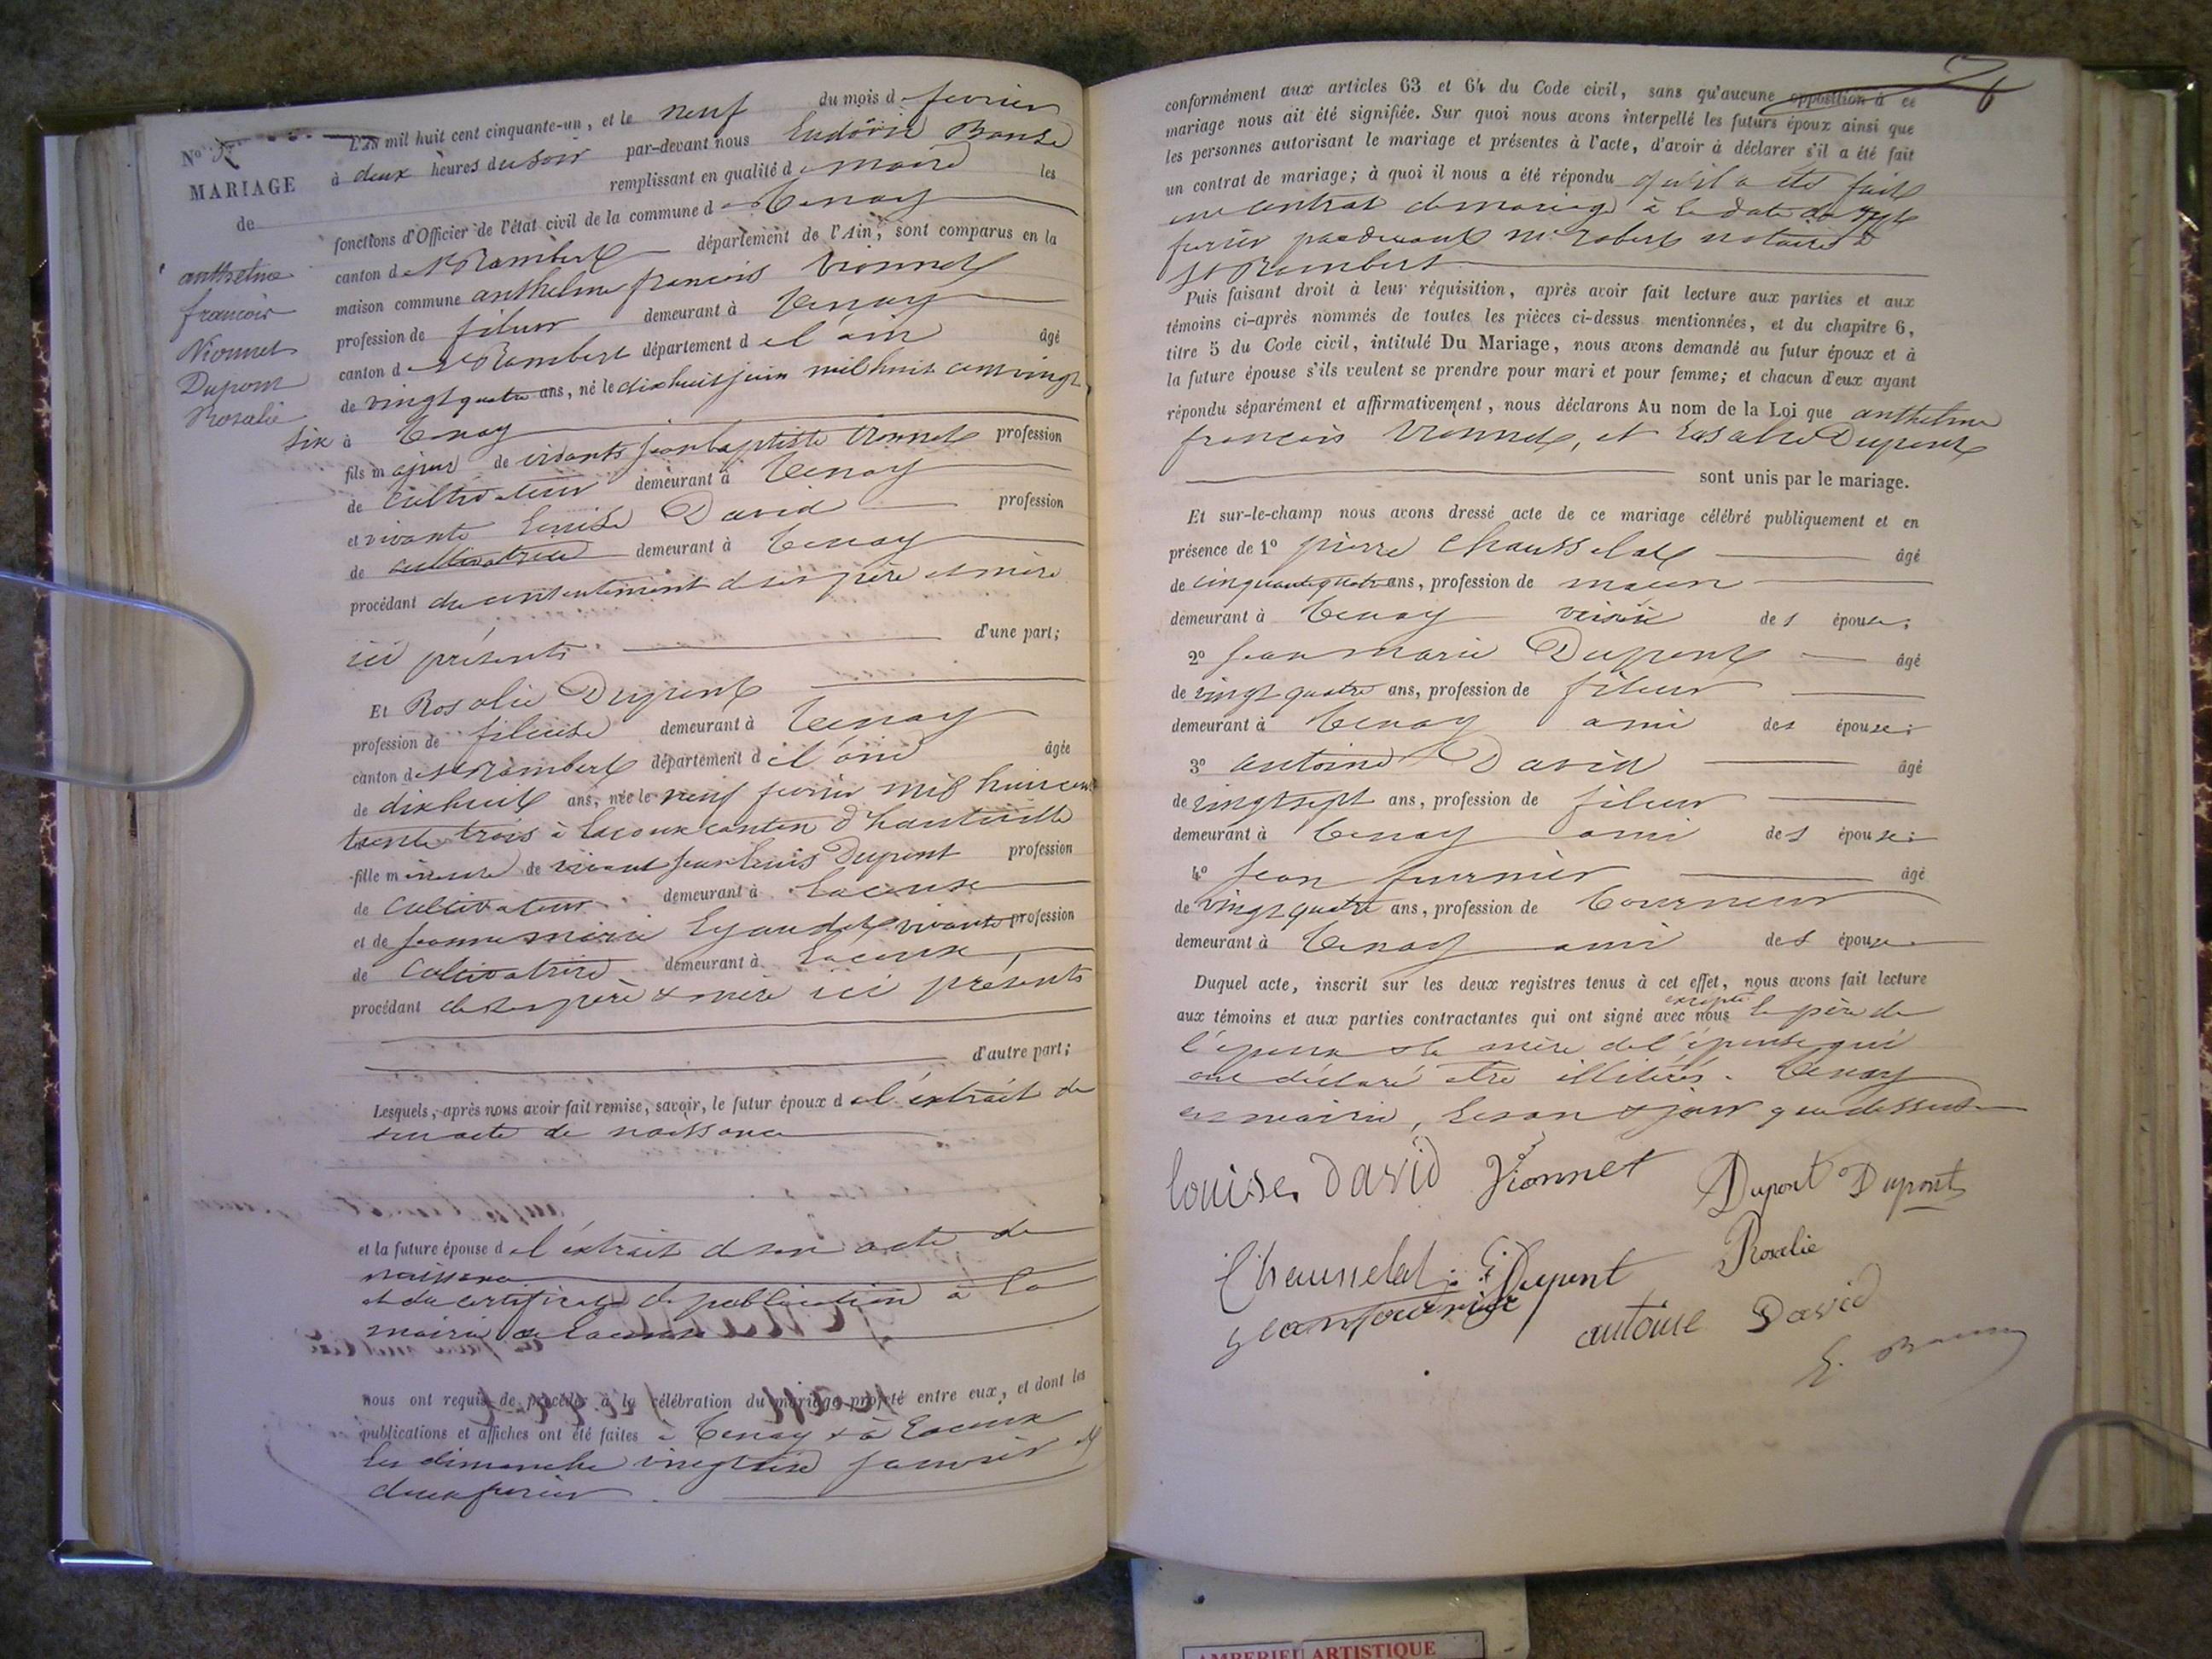 No
MARIAGE
de
anthelme
francois
Vionnet
Dupont
Rosalie
L'an mil huit cent cinquante-un, et le neuf du mois de fevrier
à deux heures du soir par-devant nous
remplissant en qualité de maire les
fonctions d'Officier de l'état civil de la commune de Tenay
canton de St Rambert département de l'Ain, sont comparus en la
maison commune anthelme francois Vionnet
profession de fileur demeurant à Tenay
canton de St Rambert département de l'ain âgé
de vingt quatre ans, né le dix huit juin mil huit cent vingt
six à Tenay
fils majeur de vivants jean baptiste Vionnet profession
de cultivateur demeurant à Tenay
et vivante Louise David profession
de cultivatrice demeurant à Tenay
procédant du consentement de ses père et mère
ici présents d'une part;
Et Rosalie Dupont
profession de fileuse demeurant à Tenay
canton de St Rambert département de l'ain âgée
de dixhuit ans, née le neuf fevrier mil huit cent
trente trois à Lacoux canton d'hauteville
fille mineure de vivant Jean Louis Dupont profession
de cultivateur demeurant à Lacoux
et de jeanne marie vivante profession
de cultivatrice demeurant à Lacoux
procédant de ses père & mère ici présents
d'autre part;
Lesquels, après nous avoir fait remise, savoir, le futur époux de l'extrait de
son acte de naissance
et la future épouse de l'extrait de son acte de
naissance
et du certificat de publication à la
mairie de Lacoux
nous ont requis de procéder à la célébration du mariage projeté entre eux, et dont les
publications et affiches ont été faites à Tenay & à Lacoux
les dimanche vingt six janvier et
deux fevrier
conformément aux articles 63 et 64 du Code civil, sans qu'aucune opposition à ce
mariage nous ait été signifiée. Sur quoi nous avons interpellé les futurs époux ainsi que
les personnes autorisant le mariage et présentes à l'acte, d'avoir à déclarer s'il a été fait
un contrat de mariage; à quoi il nous a été répondu qu'il a été fait
un contrat de mariage à la date du sept
fevrier pardevant me Robert notaire à
St Rambert
Puis faisant droit à leur réquisition, après avoir fait lecture aux parties et aux
témoins ci-après nommés de toutes les pièces ci-dessus mentionnées, et du chapitre 6,
titre 5 du Code civil, intitulé Du Mariage, nous avons demandé au futur époux et à
la future épouse s'ils veulent se prendre pour mari et pour femme; et chacun d'eux ayant
répondu séparément et affirmativement, nous déclarons Au nom de la Loi que anthelme
francois Vionnet, et Rosalie Dupont
sont unis par le mariage.
Et sur-le-champ nous avons dressé acte de ce mariage célébré publiquement et en
présence de 1º pierre Chausselat âgé
de cinquante quatre ans, profession de macon
demeurant à Tenay voisin des épouse;
2º jean marie Dupont âgé
de vingt quatre ans, profession de fileur
demeurant à Tenay ami des épouse;
3º antoine David âgé
de vingt sept ans, profession de fileur
demeurant à Tenay ami des épouse;
4º jean fournier âgé
de vingt quatre ans, profession de tourneur
demeurant à Tenay ami des épouse
Duquel acte, inscrit sur les deux registres tenus à cet effet, nous avons fait lecture
aux témoins et aux parties contractantes qui ont signé avec nous excepté le père de
l'époux & la mère de l'épouse qui
ont déclaré etre illitérés. Tenay
en mairie, les an & jour que dessus
louise David Vionnet Dupont Dupont
Rosalie
Chausselat Dupont
jean fournier antoine David
AMBERIEU ARTISTIQUE